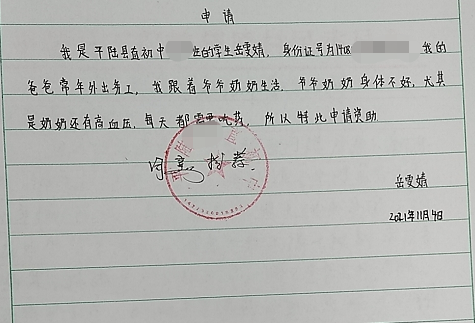 申请
我是平陆县直初中 班的学生岳雯婧，身份证号为1408 我的
爸爸常年外出务工，我跟着爷爷奶奶生活，爷爷奶奶身体不好，尤其
是奶奶还有高血压，每天都需要吃药，所以特此申请资助.
同意推荐.
岳雯婧
2021年11月4日